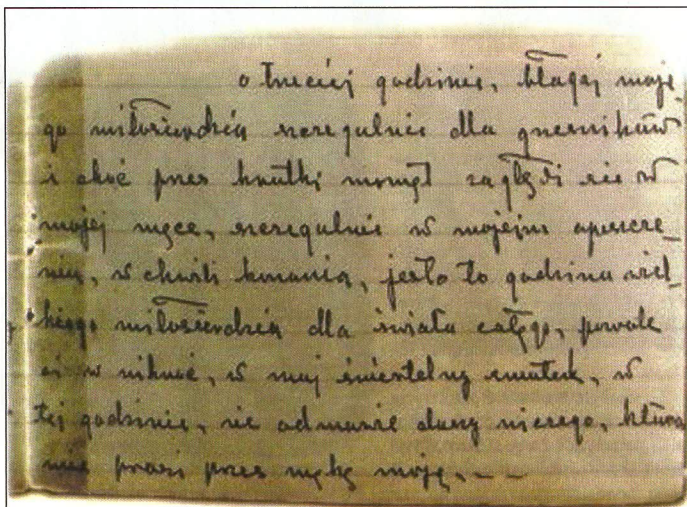 o trzeciej godzinie, błagaj moje_
go miłosierdzia szczegulnie dla grzeszników
i choć przez krutki moment zagłębi sie w
mojej męce, szczegulnie w mojejm opuszcze_
niu, w chwili konania, jesto to godzina wiel_
kiego miłosierdzia dla świata całego, pozwole
ci w niknąć, w muj śmiertelny smutek, w
tej godzinie, nie odmuwie duszy niczego, ktura
mie prosi przez mękę moję, — —